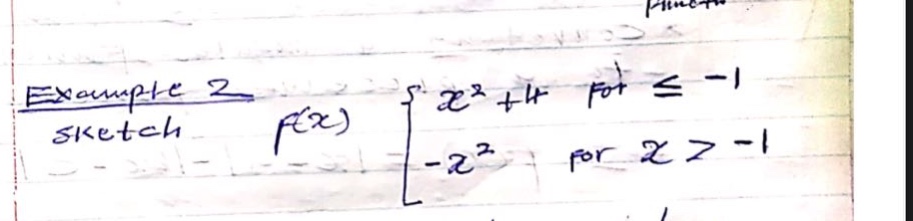 Example 2
sketch f(x) { x² + 4 for ≤ -1
-x² for x > -1